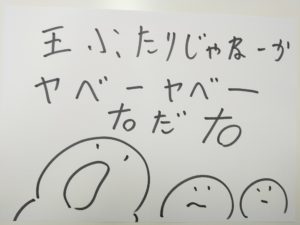 王ふたりじゃねーか
ヤベーヤベー
なだな